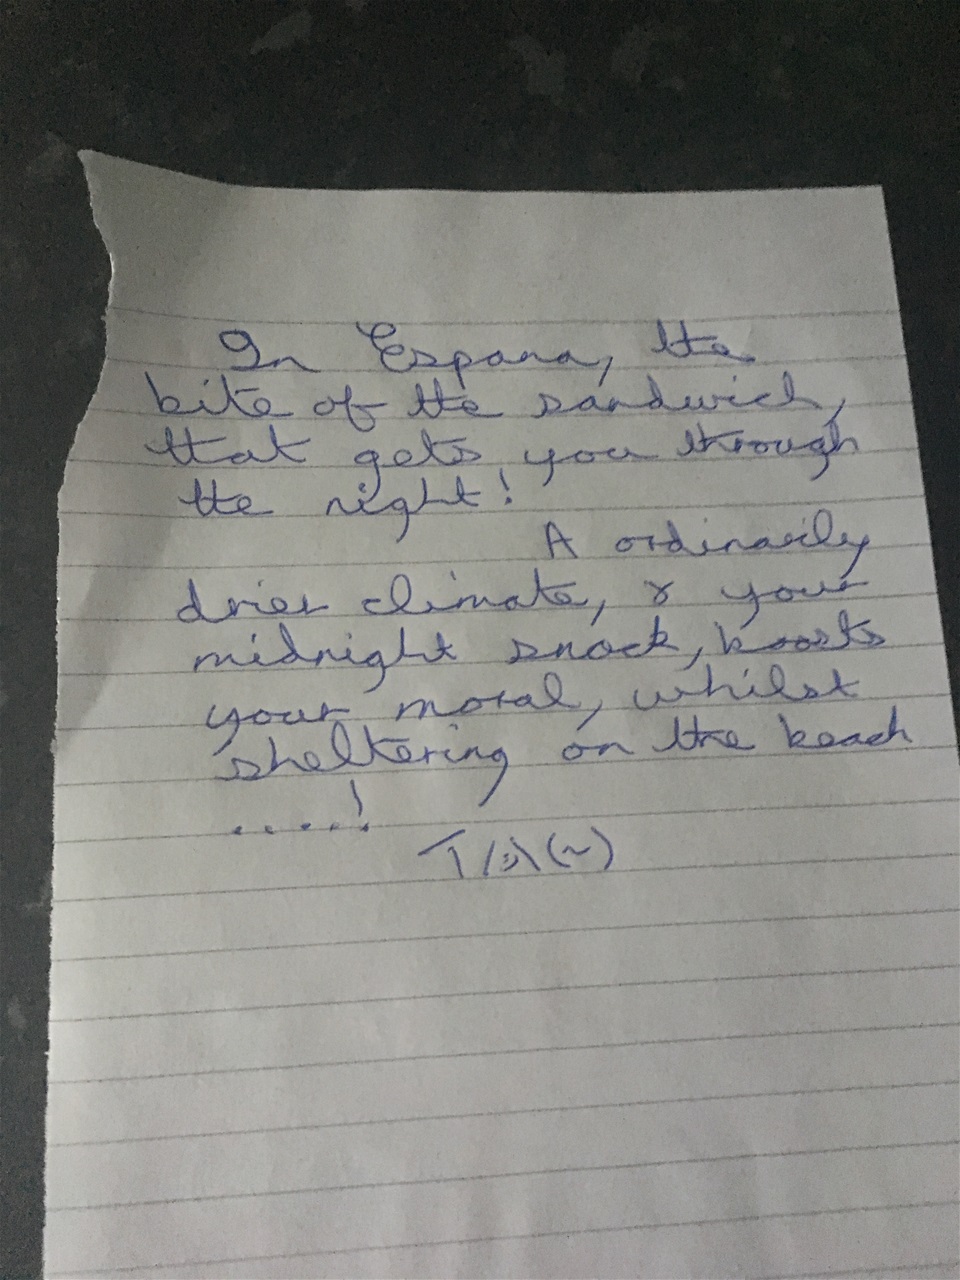 In Espana, the
bite of the sandwich,
that gets you through
the night!
A ordinarily
drier climate, & your
midnight snack, boosts
your moral, whilst
sheltering on the beach
.....!